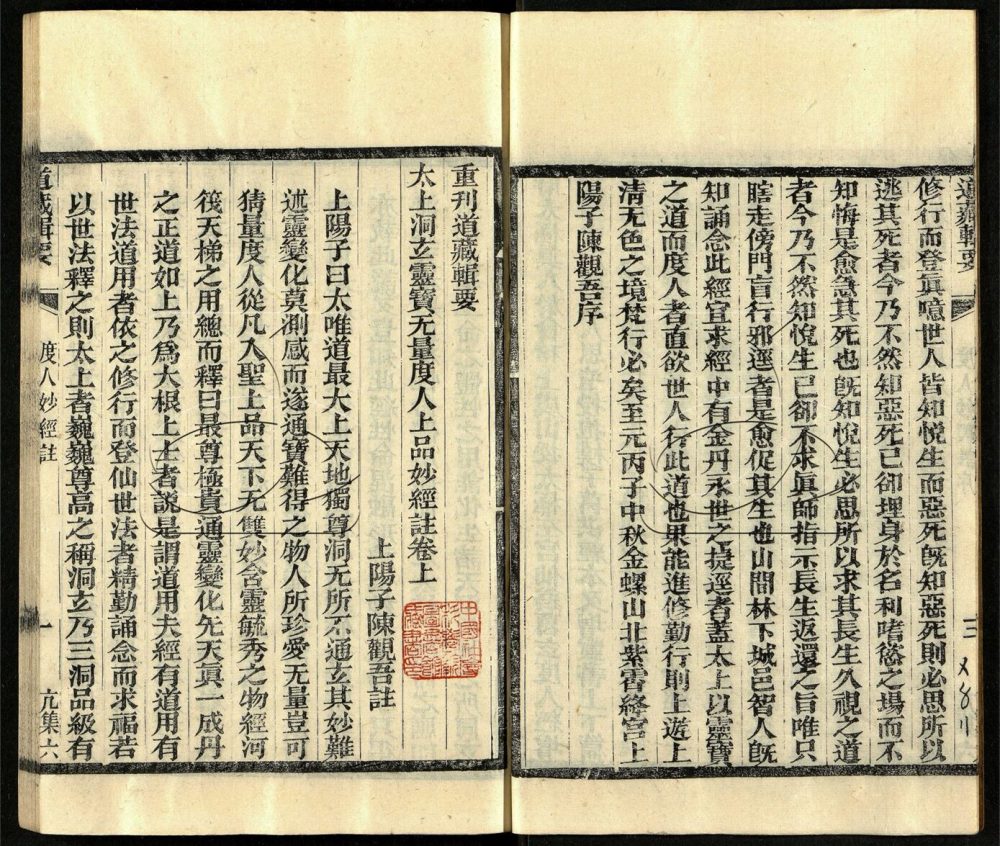 道藏輯要
三
修行而登眞噫世人皆知悅生而惡死旣知惡死則必思所以
逃其死者今乃不然知惡死已卻埋身於名利嗜慾之場而不
知悔是愈急其死也旣知悅生必思所以求其長生久視之道
者今乃不然知悅生已卻不求眞師指示長生返還之旨唯只
瞎走傍門盲行邪逕者是愈促其生也山間林下城邑智人旣
知誦念此經宜求經中有金丹永世之捷逕者蓋太上以靈寶
之道而度人者直欲世人行此道也果能進修勤行則上遊上
清无色之境梵行必矣至元丙子中秋金螺山北紫霄絳宮上
陽子陳觀吾序
重刊道藏輯要
太上洞玄靈寶无量度人上品妙經註卷上
上陽子陳觀吾註
上陽子曰太唯道最大上天地獨尊洞无所不通玄其妙難
述靈變化莫測感而遂通寶難得之物人所珍愛无量豈可
猜量度人從凡入聖上品天下无雙妙含靈毓秀之物經河
筏天梯之用總而釋曰最尊極貴通靈變化先天眞一成丹
之正道如上乃爲大根上士者說是謂道用夫經有道用有
世法道用者依之修行而登仙世法者精勤誦念而求福若
以世法釋之則太上者巍巍尊高之稱洞玄乃三洞品級有
道藏輯要
度人妙經註
一
亢集六